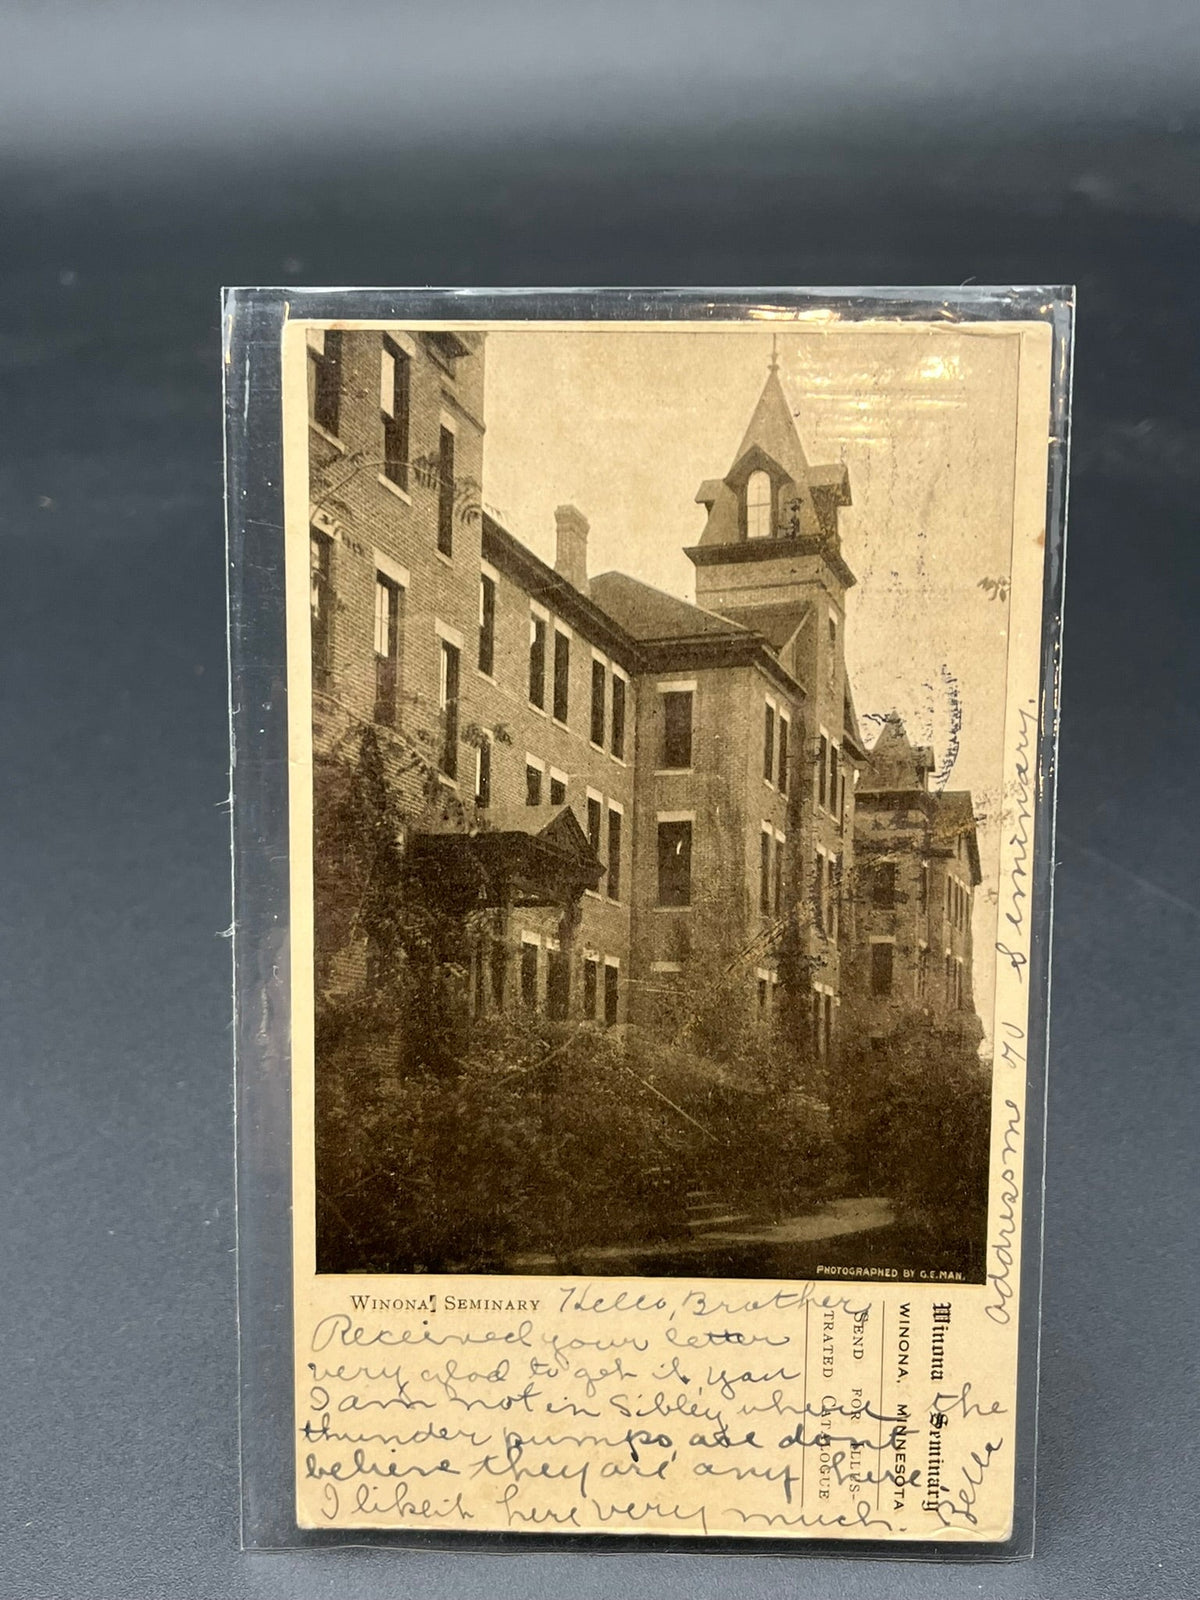 PHOTOGRAPHED BY G.E.MAN.
WINONA SEMINARY
Hello, Brother,
Received your letter
very glad to get it, you
I am not in Sibley where the
thunder pumps are dont
believe they are any here
I like it here very much.
Belle
address me % Seminary.
Winona Seminary
WINONA, MINNESOTA
SEND FOR ILLUS-
TRATED CATALOGUE